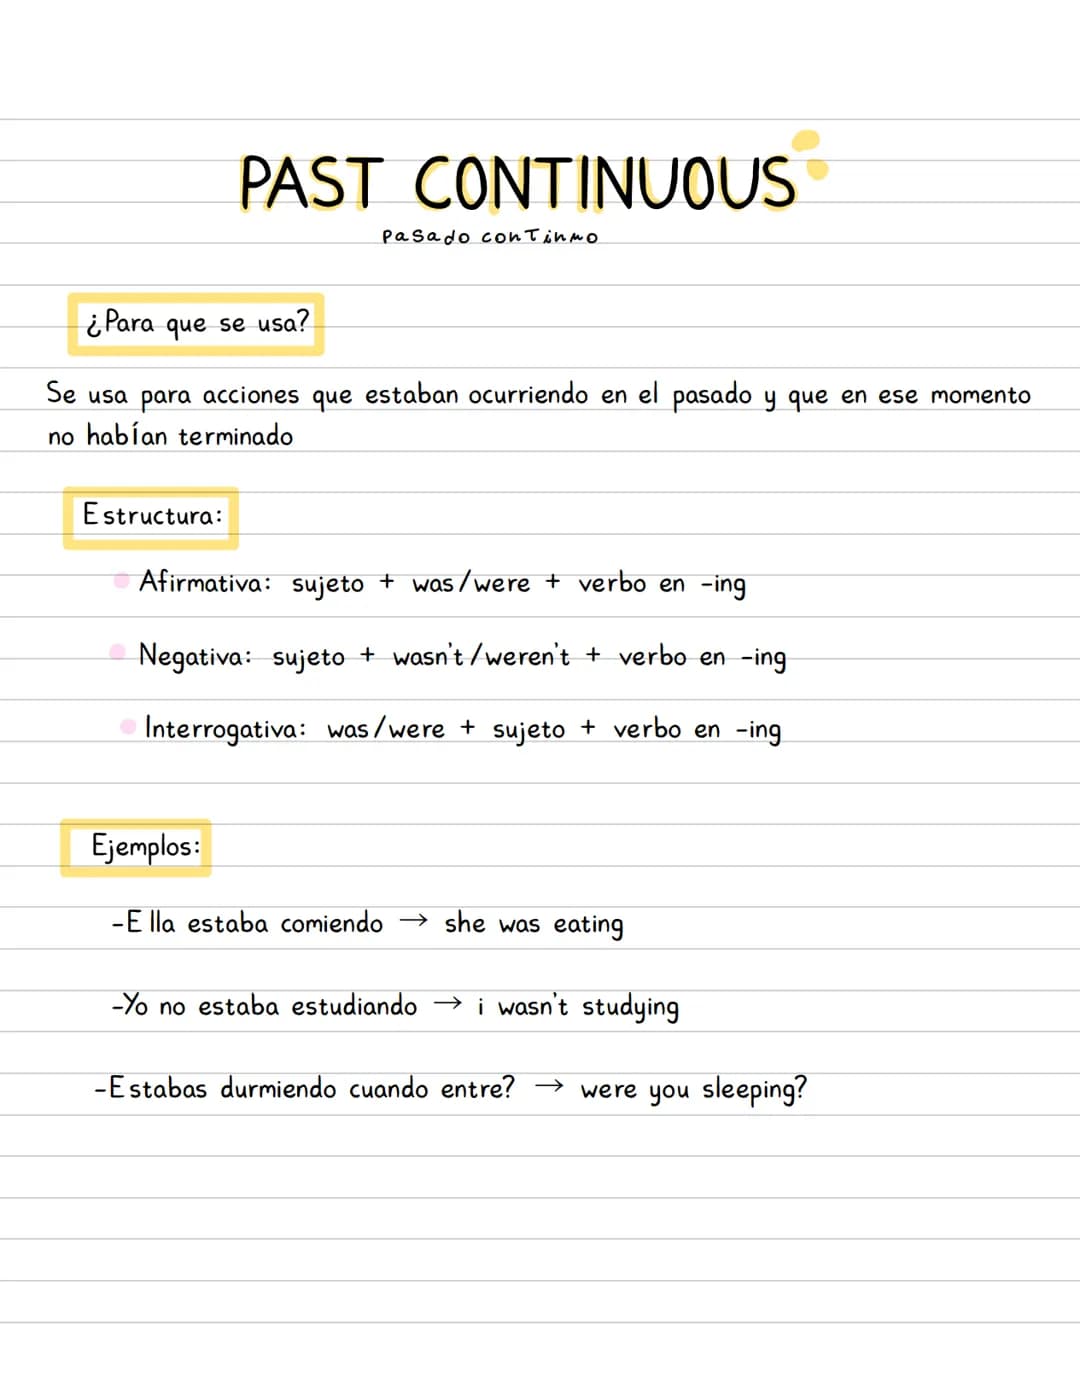 PAST CONTINUOUS
Pasado continuo
¿Para que se usa?
Se usa para acciones que estaban ocurriendo en el pasado y que en ese momento
no habían terminado
Estructura:
Afirmativa: sujeto + was/were + verbo en -ing
Negativa: sujeto + wasn't/weren't + verbo en -ing
Interrogativa: was/were + sujeto + verbo en -ing
Ejemplos:
-Ella estaba comiendo → she was eating
-Yo no estaba estudiando → i wasn't studying
-Estabas durmiendo cuando entre? → were you sleeping?